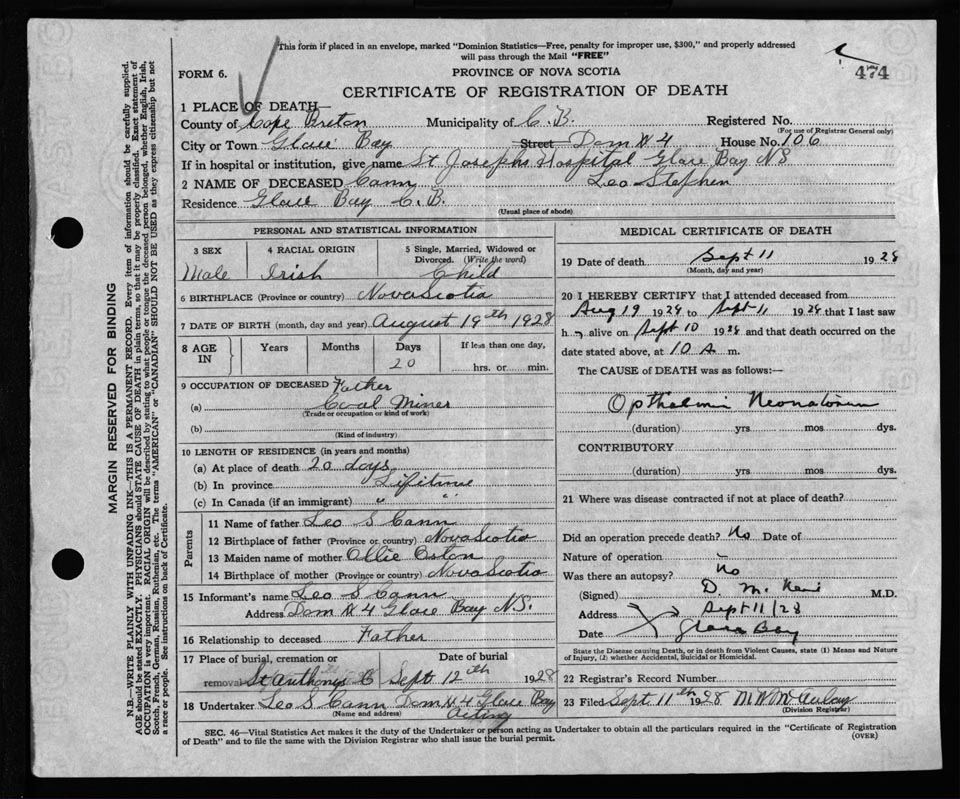 This form if placed in an envelope, marked "Dominion Statistics—Free, penalty for improper use, $300," and properly addressed
will pass through the Mail "FREE"
474
FORM 6.
PROVINCE OF NOVA SCOTIA
CERTIFICATE OF REGISTRATION OF DEATH
1 PLACE OF DEATH—
County of Cape Breton Municipality of C. B. Registered No.
(For use of Registrar General only)
City or Town Glace Bay Street Dom N 4 House No. 106
If in hospital or institution, give name St Josephs Hospital Glace Bay NS
2 NAME OF DECEASED Cann Leo Stephen
Residence Glace Bay C. B.
(Usual place of abode)
PERSONAL AND STATISTICAL INFORMATION
3 SEX 4 RACIAL ORIGIN 5 Single, Married, Widowed or
Divorced. (Write the word)
Male Irish Child
6 BIRTHPLACE (Province or country) Nova Scotia
7 DATE OF BIRTH (month, day and year) August 19th 1928
8 AGE IN Years Months Days If less than one day,
20 hrs. or min.
9 OCCUPATION OF DECEASED Father
(a) Coal Miner
(Trade or occupation or kind of work)
(b)
(Kind of industry)
10 LENGTH OF RESIDENCE (in years and months)
(a) At place of death 20 days
(b) In province Lifitime
(c) In Canada (if an immigrant) " "
Parents
11 Name of father Leo S Cann
12 Birthplace of father (Province or country) Nova Scotia
13 Maiden name of mother Ollie
14 Birthplace of mother (Province or country) Nova Scotia
15 Informant's name Leo S Cann
Address Dom N 4 Glace Bay N.S.
16 Relationship to deceased Father
17 Place of burial, cremation or Date of burial
removal St Anthonys C Sept 12th 1928
18 Undertaker Leo S Cann Dom N 4 Glace Bay
(Name and address) Acting
MEDICAL CERTIFICATE OF DEATH
19 Date of death Sept 11 1928
(Month, day and year)
20 I HEREBY CERTIFY that I attended deceased from
Aug 19 1928 to Sept 11 1928 that I last saw
h alive on Sept 10 1928 and that death occurred on the
date stated above, at 10 A. m.
The CAUSE OF DEATH was as follows:—
Opthalmia Neonatorum
(duration) yrs mos dys.
CONTRIBUTORY
(duration) yrs mos dys.
21 Where was disease contracted if not at place of death?
Did an operation precede death? No Date of
Nature of operation –
Was there an autopsy? No
(Signed) D. M. M.D.
Address Sept 11/28
Date Glace Bay
State the Disease causing Death, or in death from Violent Causes, state (1) Means and Nature
of Injury, (2) whether Accidental, Suicidal or Homicidal.
22 Registrar's Record Number
23 Filed Sept 11th 1928 McAulay
(Division Registrar)
SEC. 46—Vital Statistics Act makes it the duty of the Undertaker or person acting as Undertaker to obtain all the particulars required in the "Certificate of Registration
of Death" and to file the same with the Division Registrar who shall issue the burial permit.
(OVER)
MARGIN RESERVED FOR BINDING
N.B.—WRITE PLAINLY WITH UNFADING INK—THIS IS A PERMANENT RECORD. Every item of information should be carefully supplied.
AGE should be stated EXACTLY. PHYSICIANS should STATE CAUSE OF DEATH in plain terms, so that it may be properly classified. Exact statement of
OCCUPATION is very important. RACIAL ORIGIN will be described by stating to what people or tongue the deceased person belonged, whether English, Irish,
Scotch, French, German, Russian, Ruthenian, etc. The terms "AMERICAN" or "CANADIAN" SHOULD NOT BE USED as they express citizenship but not
a race or people. See instructions on back of Certificate.